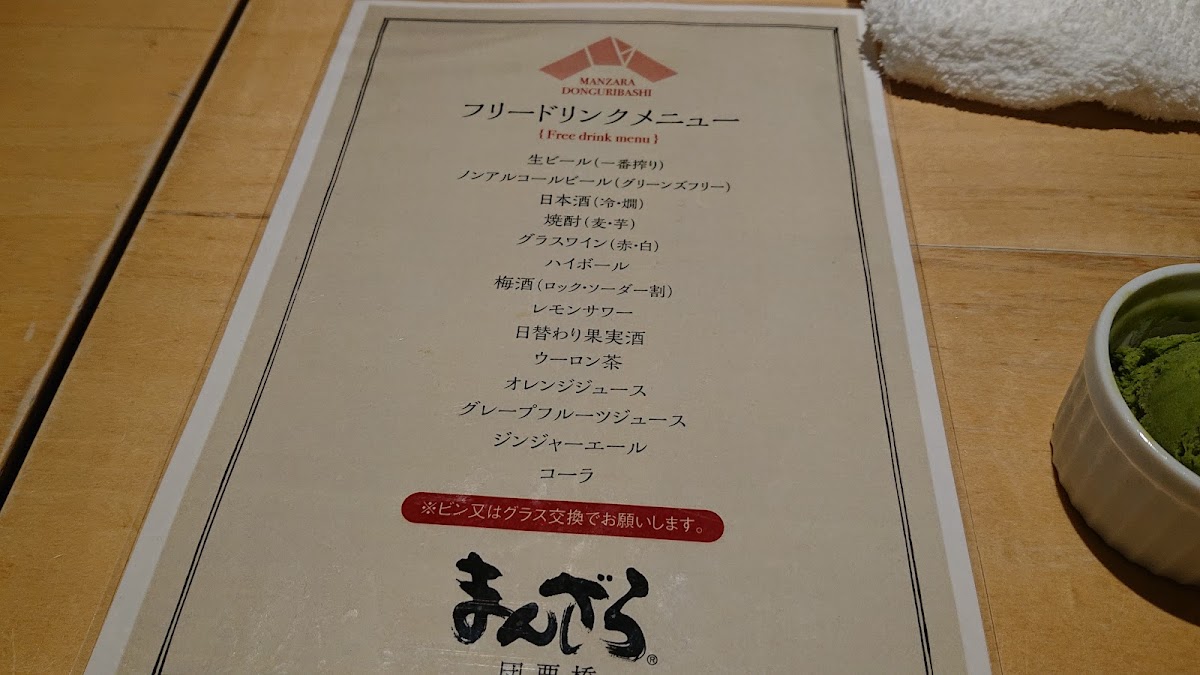 MANZARA
DONGURIBASHI
フリードリンクメニュー
{ Free drink menu }
生ビール(一番搾り)
ノンアルコールビール(グリーンズフリー)
日本酒(冷・燗)
焼酎(麦・芋)
グラスワイン(赤・白)
ハイボール
梅酒(ロック・ソーダー割)
レモンサワー
日替わり果実酒
ウーロン茶
オレンジジュース
グレープフルーツジュース
ジンジャーエール
コーラ
※ビン又はグラス交換でお願いします。
まんざら®
団栗橋